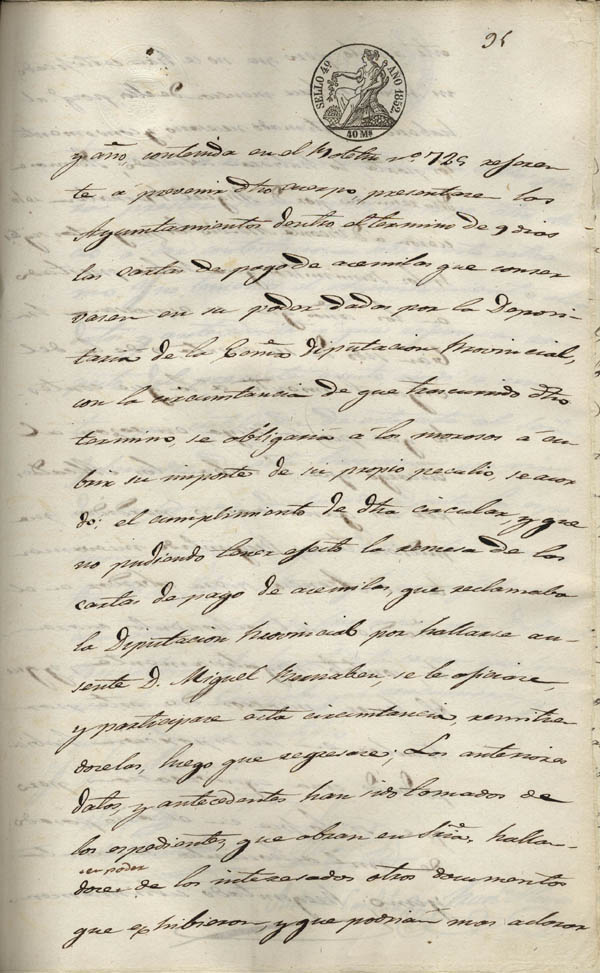 95
SELLO 4º AÑO 1852.
40 Ms
y año, contenida en el Boletin nº 725 referen
te a prevenir dho cuerpo, presentare los
Ayuntamientos dentro el termino de 9 dias
las cartas de pago de acemilas que conser
vasen en su poder dadas por la Deposi-
taria de la Exma Diputacion Provincial,
con la circunstancia de que trascurrido dho
termino, se obligaria á los morosos á cu
brir su importe de su propio peculio, se acor
do; el cumplimiento de dha circular, y que
no pudiendo tener efecto la remesa de las
cartas de pago de acemilas, que reclamaba
la Diputacion Provincial por hallarse au-
sente D. Miguel Bernabeu, se le oficiare,
y participare esta circunstancia, remitien
doselas, luego que regresare; Los anteriores
datos, y antecedentes han sido tomados de
los espedientes, que obran en Sria, hallan-
en poder
dose de los interesados otros documentos
que exhibieron, y que podrian mas aclarar